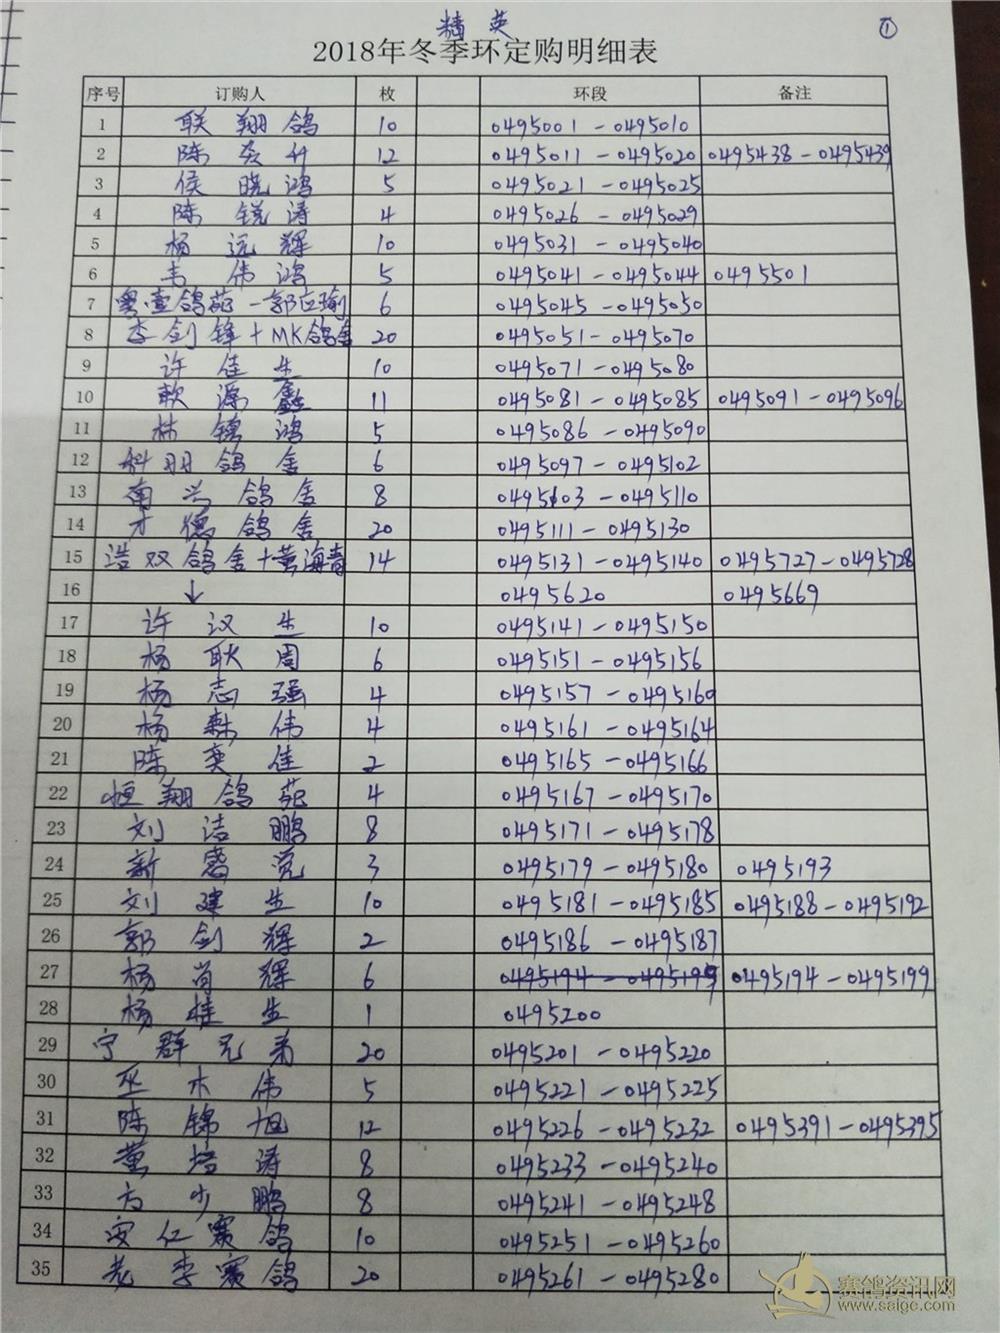 精英
①
2018年冬季环定购明细表
序号 订购人 枚 环段 备注
1 联翔鸽 10 0495001-0495010
2 陈炎升 12 0495011-0495020 0495438-0495439
3 侯晓鸿 5 0495021-0495025
4 陈锐涛 4 0495026-0495029
5 杨远辉 10 0495031-0495040
6 韦伟鸿 5 0495041-0495044 0495501
7 粤·壹鸽苑-郭应瑜 6 0495045-0495050
8 李剑锋+MK鸽舍 20 0495051-0495070
9 许佳生 10 0495071-0495080
10 源鑫 11 0495081-0495085 0495091-0495096
11 林锦鸿 5 0495086-0495090
12 科羽鸽舍 6 0495097-0495102
13 南兴鸽舍 8 0495103-0495110
14 才德鸽舍 20 0495111-0495130
15 浩双鸽舍+黄海青 14 0495131-0495140 0495727-0495728
16 ↓ 0495620 0495669
17 许汉生 10 0495141-0495150
18 杨耿周 6 0495151-0495156
19 杨志强 4 0495157-0495160
20 杨森伟 4 0495161-0495164
21 陈奕佳 2 0495165-0495166
22 恒翔鸽苑 4 0495167-0495170
23 刘洁鹏 8 0495171-0495178
24 新 3 0495179-0495180 0495193
25 刘建生 10 0495181-0495185 0495188-0495192
26 郭剑辉 2 0495186-0495187
27 杨尚辉 6 0495194-0495199 0495194-0495199
28 杨桂生 1 0495200
29 宁群兄弟 20 0495201-0495220
30 巫木伟 5 0495221-0495225
31 陈锦旭 12 0495226-0495232 0495391-0495395
32 董培涛 8 0495233-0495240
33 方少鹏 8 0495241-0495248
34 安仁赛鸽 10 0495251-0495260
35 老李赛鸽 20 0495261-0495280
赛鸽资讯网
www.saige.com